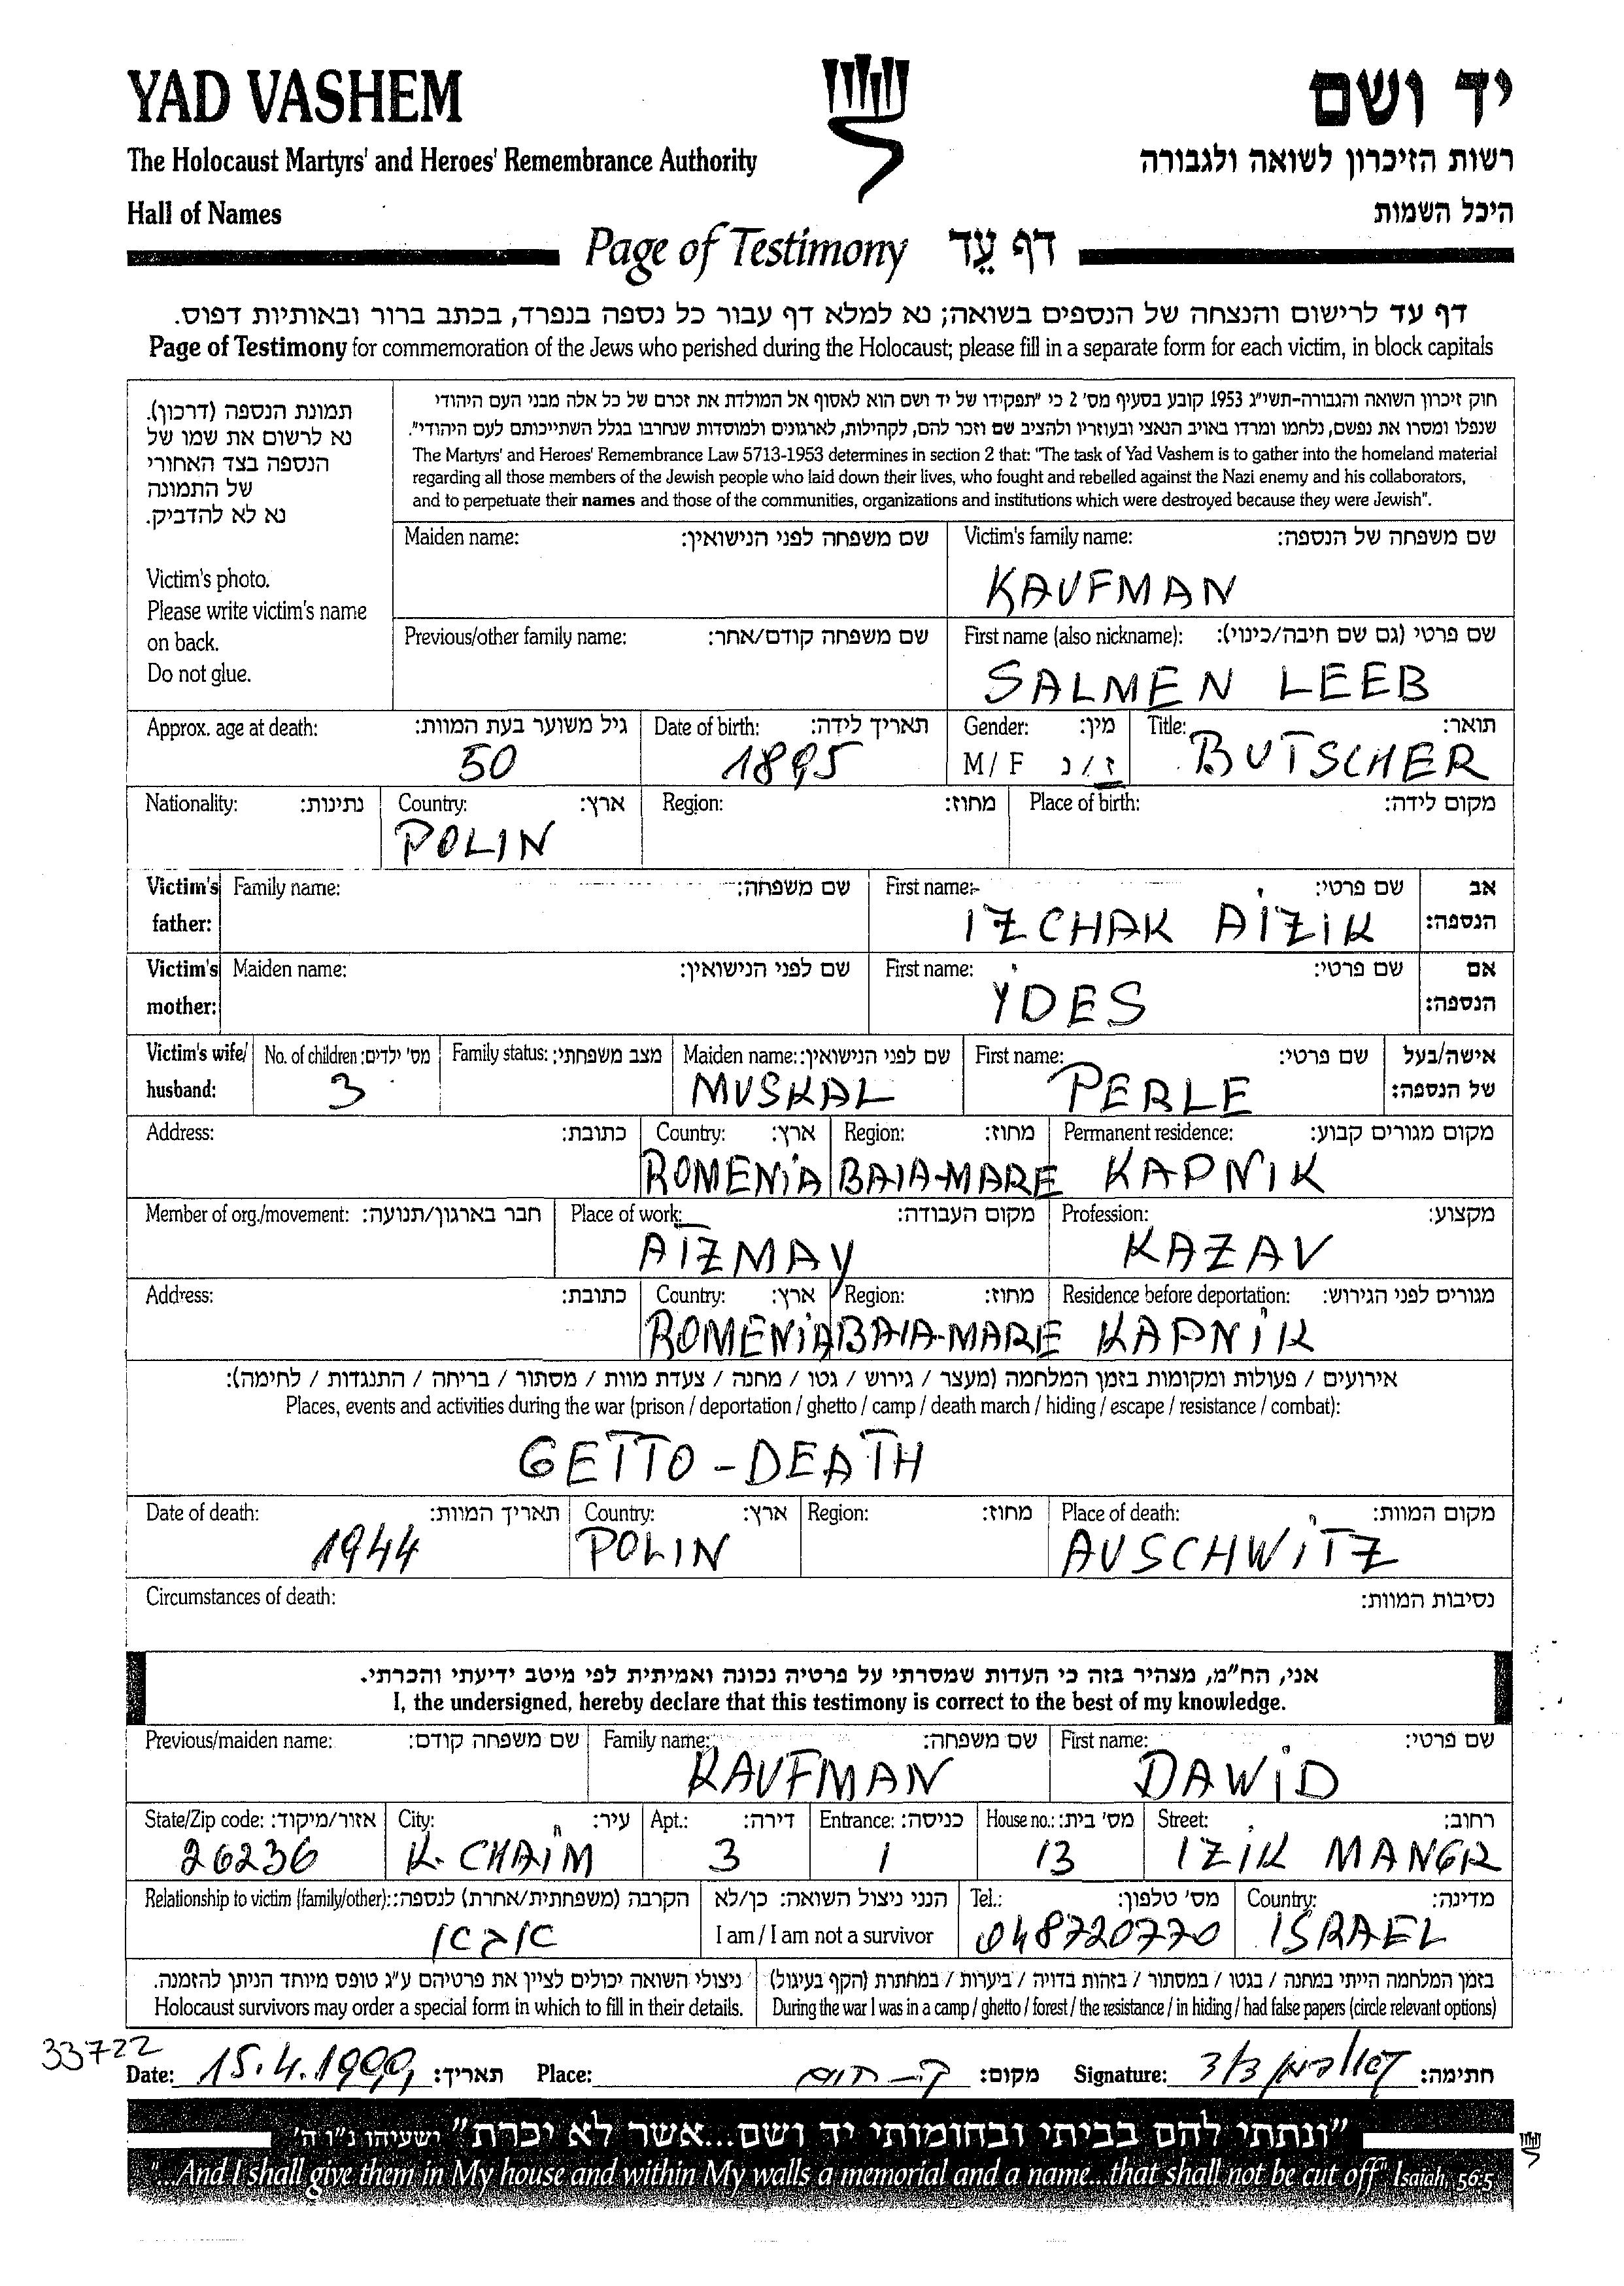 YAD VASHEM
יד ושם
The Holocaust Martyrs' and Heroes' Remembrance Authority
רשות הזיכרון לשואה ולגבורה
Hall of Names
היכל השמות
Page of Testimony דף עֵד
דף עד לרישום והנצחה של הנספים בשואה; נא למלא דף עבור כל נספה בנפרד, בכתב ברור ובאותיות דפוס.
Page of Testimony for commemoration of the Jews who perished during the Holocaust; please fill in a separate form for each victim, in block capitals
תמונת הנספה (דרכון).
נא לרשום את שמו של
הנספה בצד האחורי
של התמונה
נא לא להדביק.
Victim's photo.
Please write victim's name
on back.
Do not glue.
חוק זיכרון השואה והגבורה-תשי"ג 1953 קובע בסעיף מס' 2 כי "תפקידו של יד ושם הוא לאסוף אל המולדת את זכרם של כל אלה מבני העם היהודי
שנפלו ומסרו את נפשם, נלחמו ומרדו באויב הנאצי ובעוזריו ולהציב שם וזכר להם, לקהילות, לארגונים ולמוסדות שנחרבו בגלל השתייכותם לעם היהודי".
The Martyrs' and Heroes' Remembrance Law 5713-1953 determines in section 2 that: "The task of Yad Vashem is to gather into the homeland material
regarding all those members of the Jewish people who laid down their lives, who fought and rebelled against the Nazi enemy and his collaborators,
and to perpetuate their names and those of the communities, organizations and institutions which were destroyed because they were Jewish".
Maiden name: שם משפחה לפני הנישואין: Victim's family name: שם משפחה של הנספה:
KAUFMAN
Previous/other family name: שם משפחה קודם/אחר: First name (also nickname): שם פרטי (גם שם חיבה/כינוי):
SALMEN LEEB
Approx. age at death: גיל משוער בעת המוות: Date of birth: תאריך לידה: Gender: מין: Title: תואר:
50 1895 M / F ז / נ BUTSCHER
Nationality: נתינות: Country: ארץ: Region: מחוז: Place of birth: מקום לידה:
POLIN
Victim's father: Family name: שם משפחה: First name: שם פרטי: אב הנספה:
IZCHAK AIZIK
Victim's mother: Maiden name: שם לפני הנישואין: First name: שם פרטי: אם הנספה:
YDES
Victim's wife/ husband: No. of children: מס' ילדים: Family status: מצב משפחתי: Maiden name: שם לפני הנישואין: First name: שם פרטי: אישה/בעל של הנספה:
3 MUSKAL PERLE
Address: כתובת: Country: ארץ: Region: מחוז: Permanent residence: מקום מגורים קבוע:
ROMENiA BAIA-MARE KAPNIK
Member of org./movement: חבר בארגון/תנועה: Place of work: מקום העבודה: Profession: מקצוע:
AIZMAY KAZAV
Address: כתובת: Country: ארץ: Region: מחוז: Residence before deportation: מגורים לפני הגירוש:
ROMENiA BAIA-MARE KAPNiK
אירועים / פעולות ומקומות בזמן המלחמה (מעצר / גירוש / גטו / מחנה / צעדת מוות / מסתור / בריחה / התנגדות / לחימה):
Places, events and activities during the war (prison / deportation / ghetto / camp / death march / hiding / escape / resistance / combat):
GETTO - DEATH
Date of death: תאריך המוות: Country: ארץ: Region: מחוז: Place of death: מקום המוות:
1944 POLIN AUSCHWiTZ
Circumstances of death: נסיבות המוות:
אני, הח"מ, מצהיר בזה כי העדות שמסרתי על פרטיה נכונה ואמיתית לפי מיטב ידיעתי והכרתי.
I, the undersigned, hereby declare that this testimony is correct to the best of my knowledge.
Previous/maiden name: שם משפחה קודם: Family name: שם משפחה: First name: שם פרטי:
KAUFMAN DAWiD
State/Zip code: אזור/מיקוד: City: עיר: Apt.: דירה: Entrance: כניסה: House no.: מס' בית: Street: רחוב:
26236 K. CHAiM 3 1 13 IZIK MANGR
Relationship to victim (family/other): הקרבה (משפחתית/אחרת) לנספה: הנני ניצול השואה: כן/לא Tel.: מס' טלפון: Country: מדינה:
I am / I am not a survivor 048720770 ISRAEL
בזמן המלחמה הייתי במחנה / בגטו / במסתור / בזהות בדויה / ביערות / במחתרת (הקף בעיגול)
During the war I was in a camp / ghetto / forest / the resistance / in hiding / had false papers (circle relevant options)
ניצולי השואה יכולים לציין את פרטיהם ע"ג טופס מיוחד הניתן להזמנה.
Holocaust survivors may order a special form in which to fill in their details.
33722
Date: 15.4.1999 תאריך: Place: מקום: Signature: חתימה:
"ונתתי להם בביתי ובחומותי יד ושם...אשר לא יכרת" ישעיהו נ"ו ה'
"...And I shall give them in My house and within My walls a memorial and a name...that shall not be cut off" Isaiah, 56:5